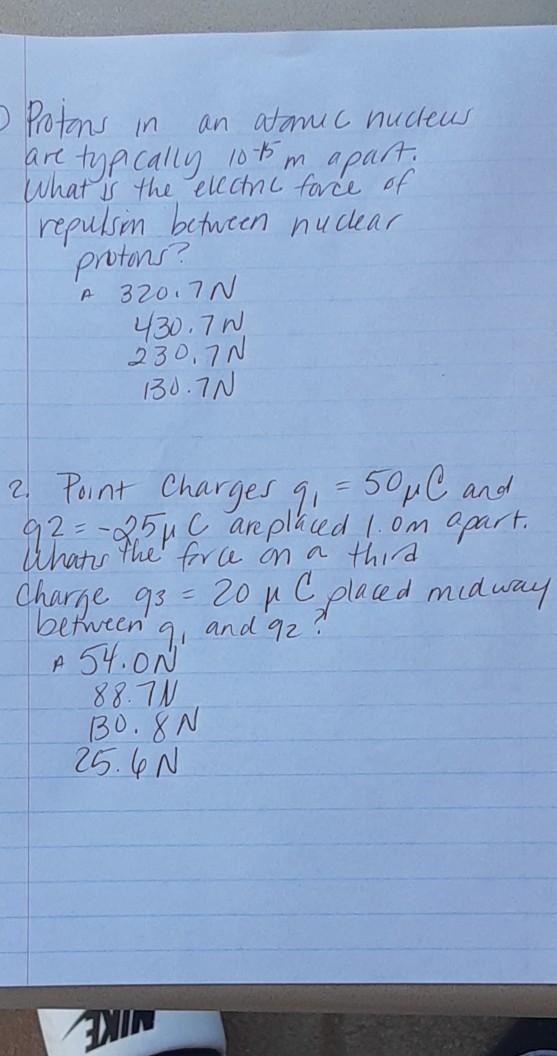 ) Protons in an atomic nucleus
are typically 10⁻¹⁵ m apart.
What is the electric force of
repulsion between nuclear
protons?
A 320.7N
430.7N
230.7N
130.7N
2. Point Charges q₁ = 50μC and
q2 = -25μC are placed 1.0m apart.
Whats the force on a third
Charge q3 = 20 μC placed midway
between q₁ and q2?
A 54.0N
88.7N
130.8N
25.6N
NIKE